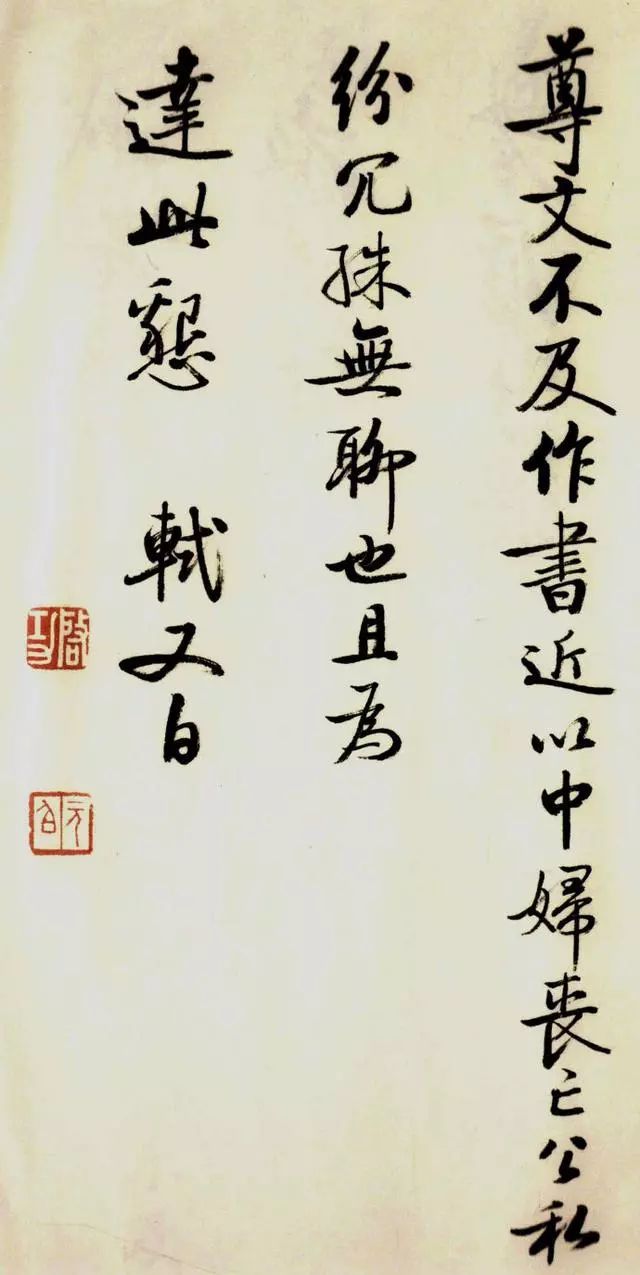 尊文不及作書近以中婦喪亡公私
紛冗殊無聊也且為
達此懇 軾又白
啓功
元白